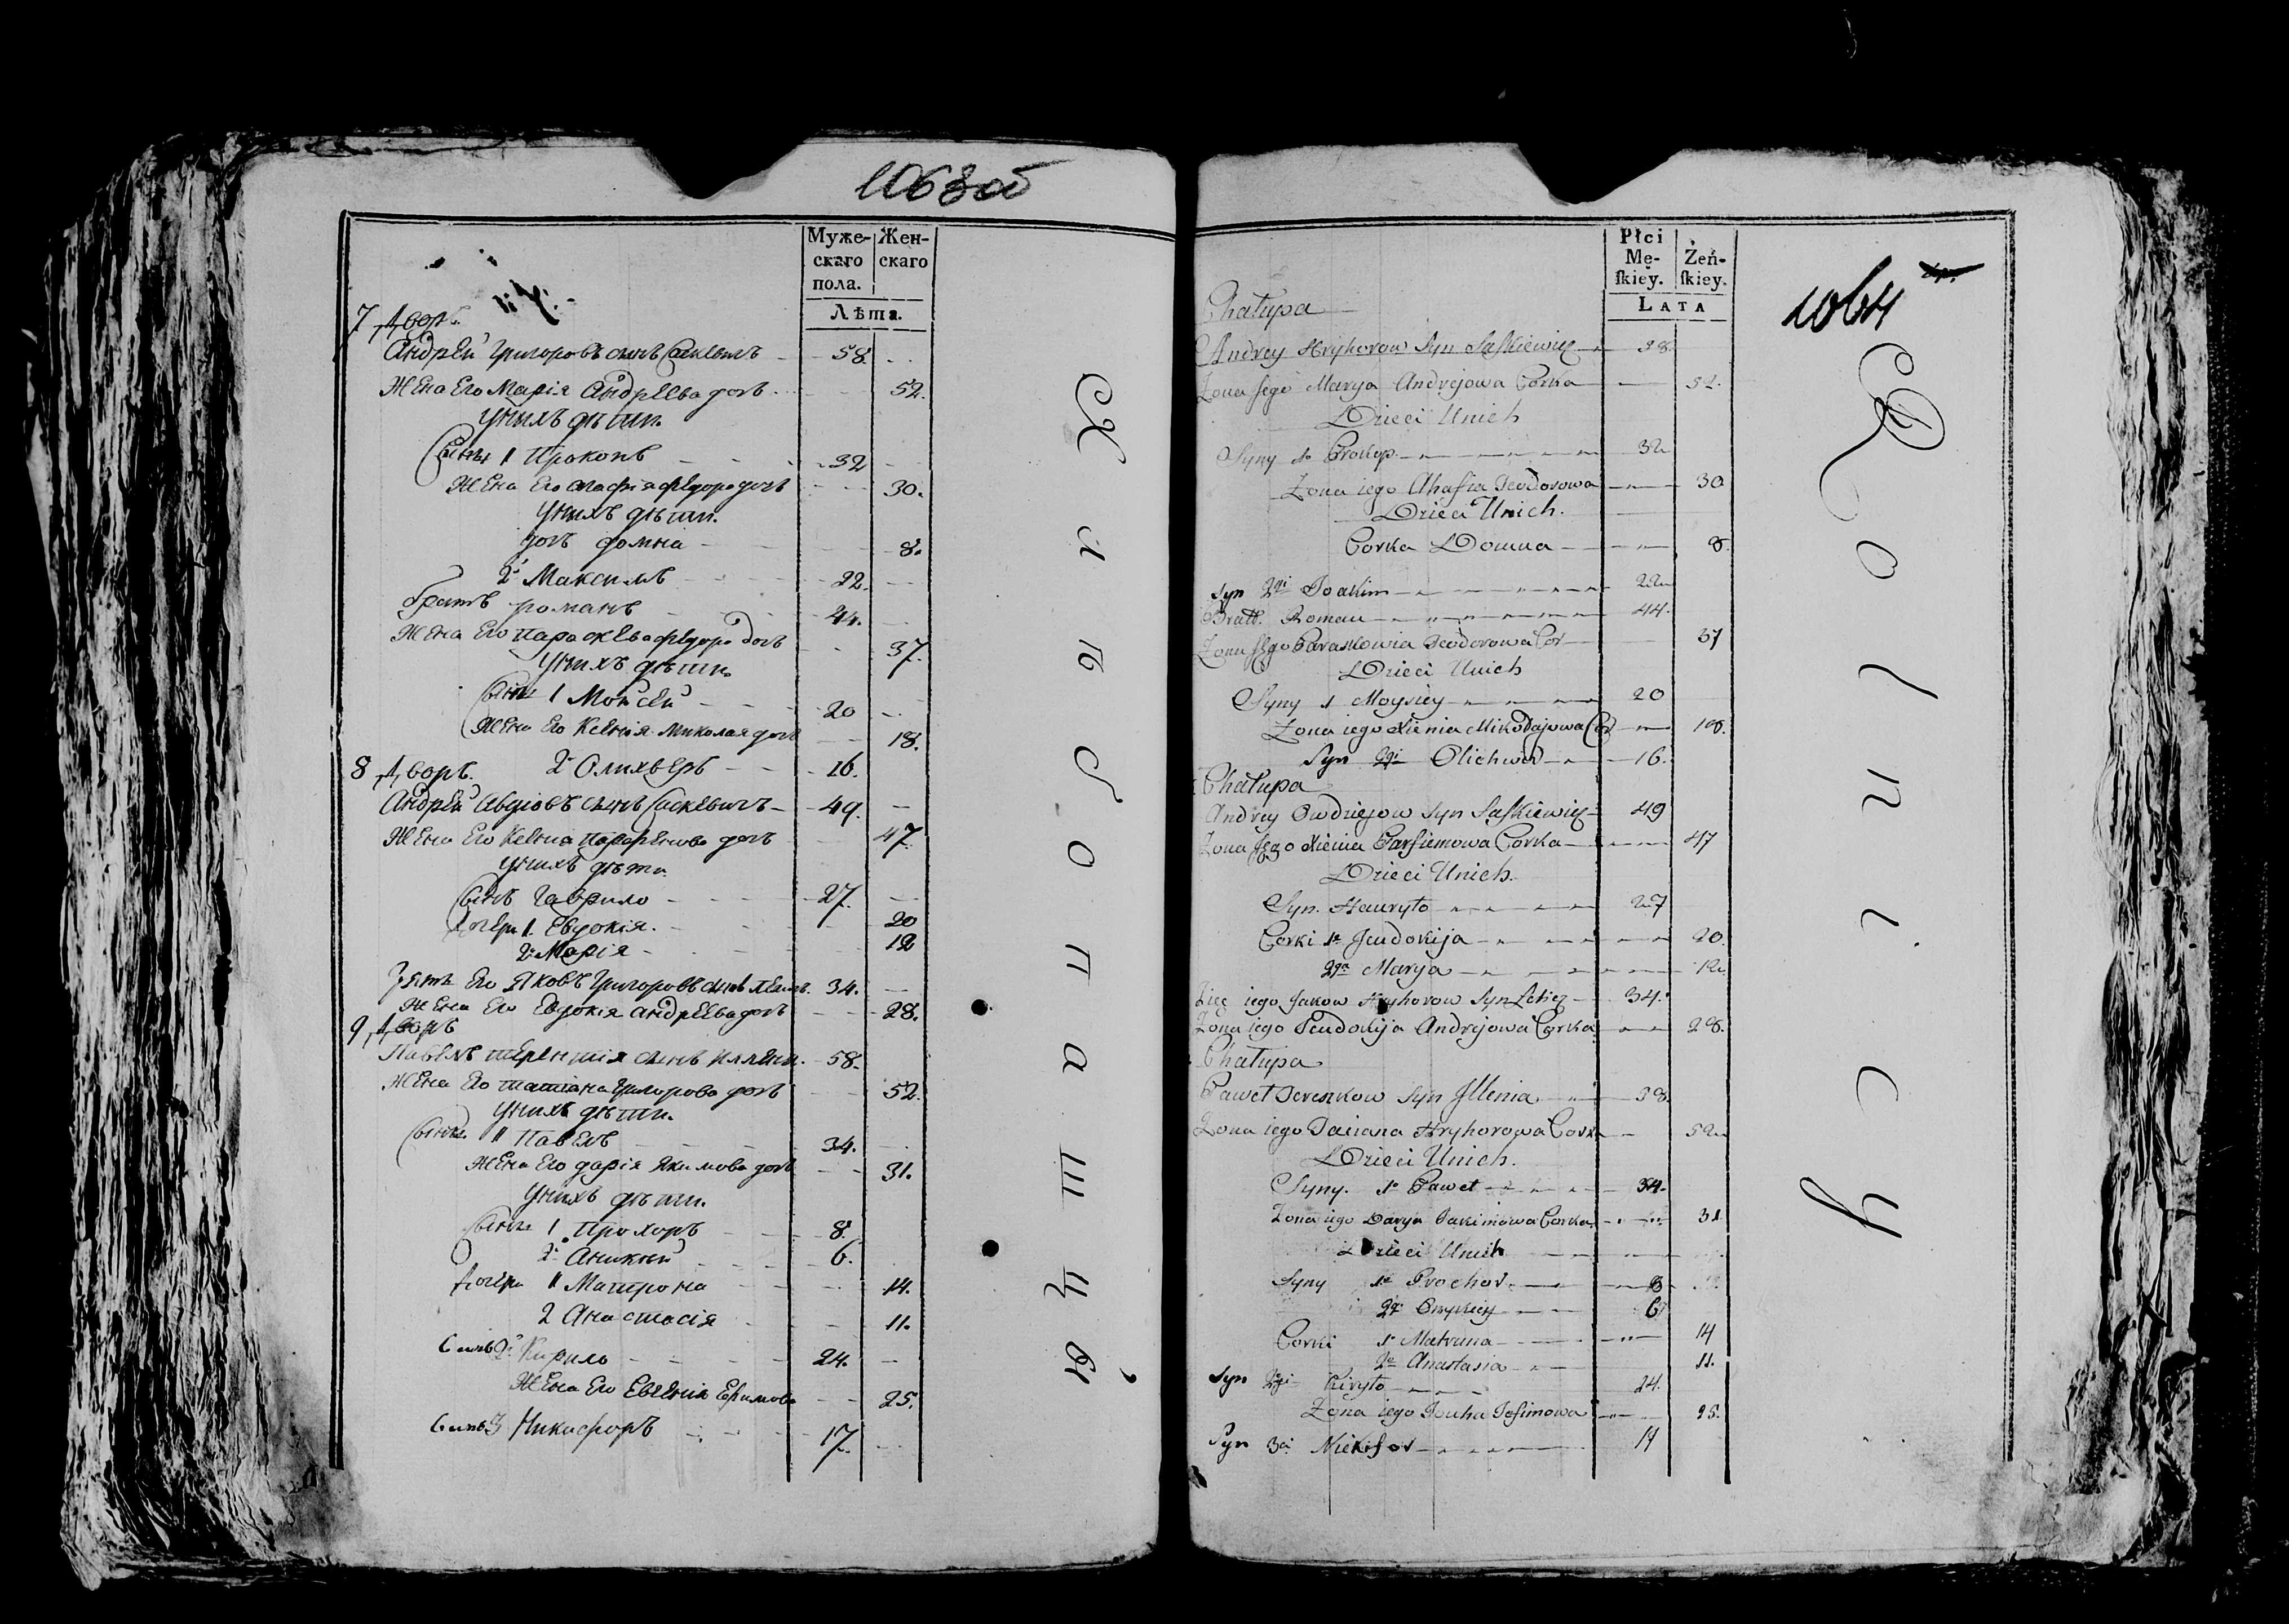 1063об
Муже-
скаго
пола.
Жен-
скаго
Лѣта.
7 дворъ.
Андрей Григоровъ сынъ Саскевичъ 58
Жена Его Марія Андреева дочь 52.
Унихъ дѣти.
Сыны 1 Прокопъ 32
Жена Его Агафія Федоро дочь 30.
Унихъ дѣти.
дочь Домна 8.
2й Максимъ 22.
братъ романъ 44.
Жена Его Параскева Федоро дочь 37.
Унихъ дѣти
Сыны 1 Мойсей 20
Жена Его Ксенія Миколая дочь 18.
2й Олихверъ 16.
8 дворъ.
Андрей Авдіовъ сынъ Саскевичъ 49.
Жена Его Ксенія Парфенова дочь 47
Унихъ дѣти
Сынъ Гаврило 27.
дочери 1. Евдокія. 20
2. Марія 12
Зять Его Яковъ Григоровъ сынъ 34.
Жена Его Евдокія Андреева дочь 28.
9 дворъ
Павелъ Терентія сынъ 58.
Жена Его Татіана Григорова дочь 52.
Унихъ дѣти.
Сыны 1 Павелъ 34.
Жена Его Дарія Якимова дочь 31.
Унихъ дѣти.
Сыны 1. Прохоръ 8.
2. Аникій 6.
дочери 1 Матрона 14.
2 Анастасія 11.
Синъ 2й Кирило 24.
Жена Его Евгенія Ефимова 25.
Синъ 3 Никифоръ 17.
Хлѣбопашцы
Płci
Mę-
ſkiey.
Zeń-
ſkiey.
LATA
1064
Chałupa
Andrey Hryhorow Syn Saſkiewicz 58
Zona Jego Marya Andrejowa Corka 52.
Dzieci Unich
Syny 1o Prokop 32
Zona iego Ahafia Teodorowa 30
Dzieci Unich.
Corka Domna 8.
Syn 2gi Joakim 22
Bratt. Roman 44.
Zona Jego Paraskowia Teodorowa Cor 37
Dzieci Unich
Syny 1 Moysiey 20
Zona iego Xienia Mikołajowa Cor 18.
Syn 2gi Olichwer 16.
Chałupa
Andrey Owdziejow Syn Saſkiewicz 49
Zona Jego Xienia Parfiemowa Corka 47
Dzieci Unich.
Syn. Hauryło 27
Corki 1a Jeudokija 20.
2ga Marya 12
Zięc iego Jakow Hryhorow Syn 34.
Zona iego Jeudokija Andrejowa Corka 28.
Chałupa
Paweł Tereszkow Syn Illenia 58.
Zona iego Taciana Hryhorowa Cork 52
Dzieci Unich.
Syny. 1o Paweł 34.
Zona iego Darya Jakimowa Corka 31
Dzieci Unich
Syny 1o Prochor 8
2gi Onykiey 6
Corki 1a Matruna 14
2a Anastasia 11.
Syn 2gi Kiryło 24.
Zona iego Jouha Jofimowa 25.
Syn 3ci Nickifor 17
Rolnicy